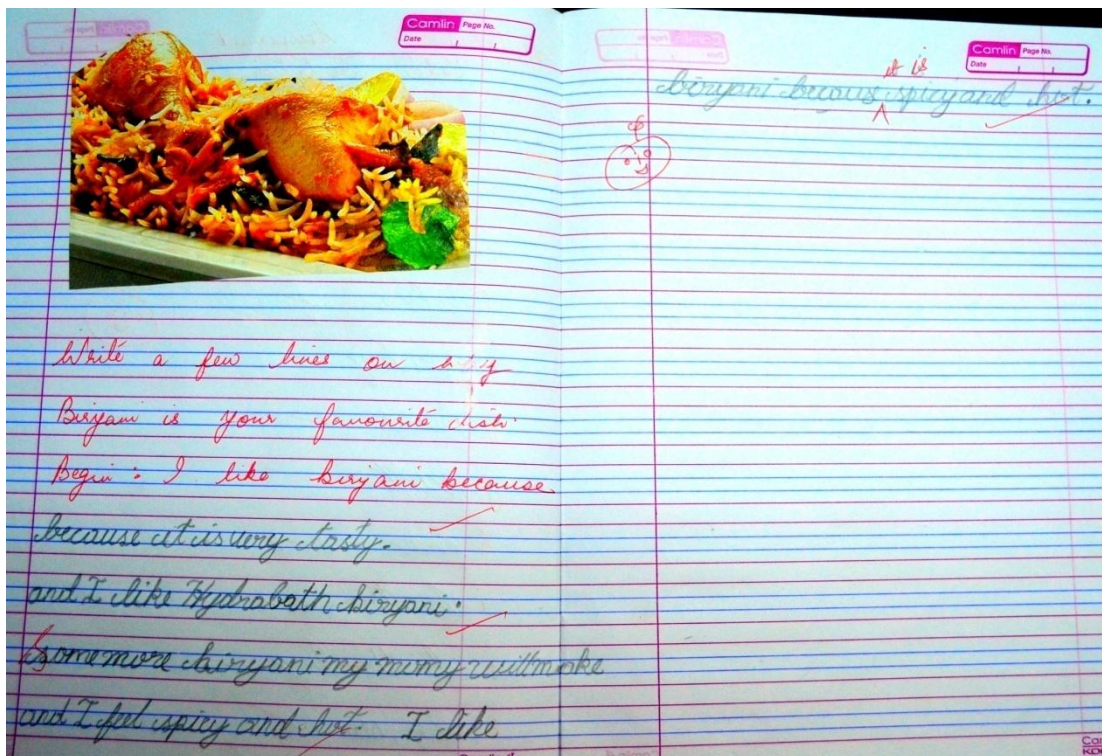 Camlin Page No.
Date
Write a few lines on why
Biryani is your favourite dish.
Begin : I like biryani because
because it is very tasty.
and I like Hydrabath biryani.
Some more biryani my momy will make
and I feel spicy and hot. I like
Camlin Page No.
Date
it is
biryani becaus spicy and hot.